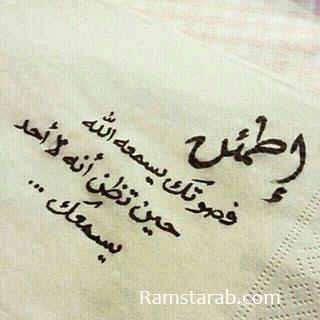 إطمئن
فصوتك يسمعه الله
حين تظن أنه لا أحد
يسمعك ...
Ramstarab.com